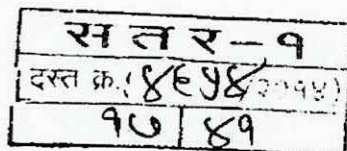 स त र - १
दस्त क्र. (४९५४/२०१४)
१७ | ४१